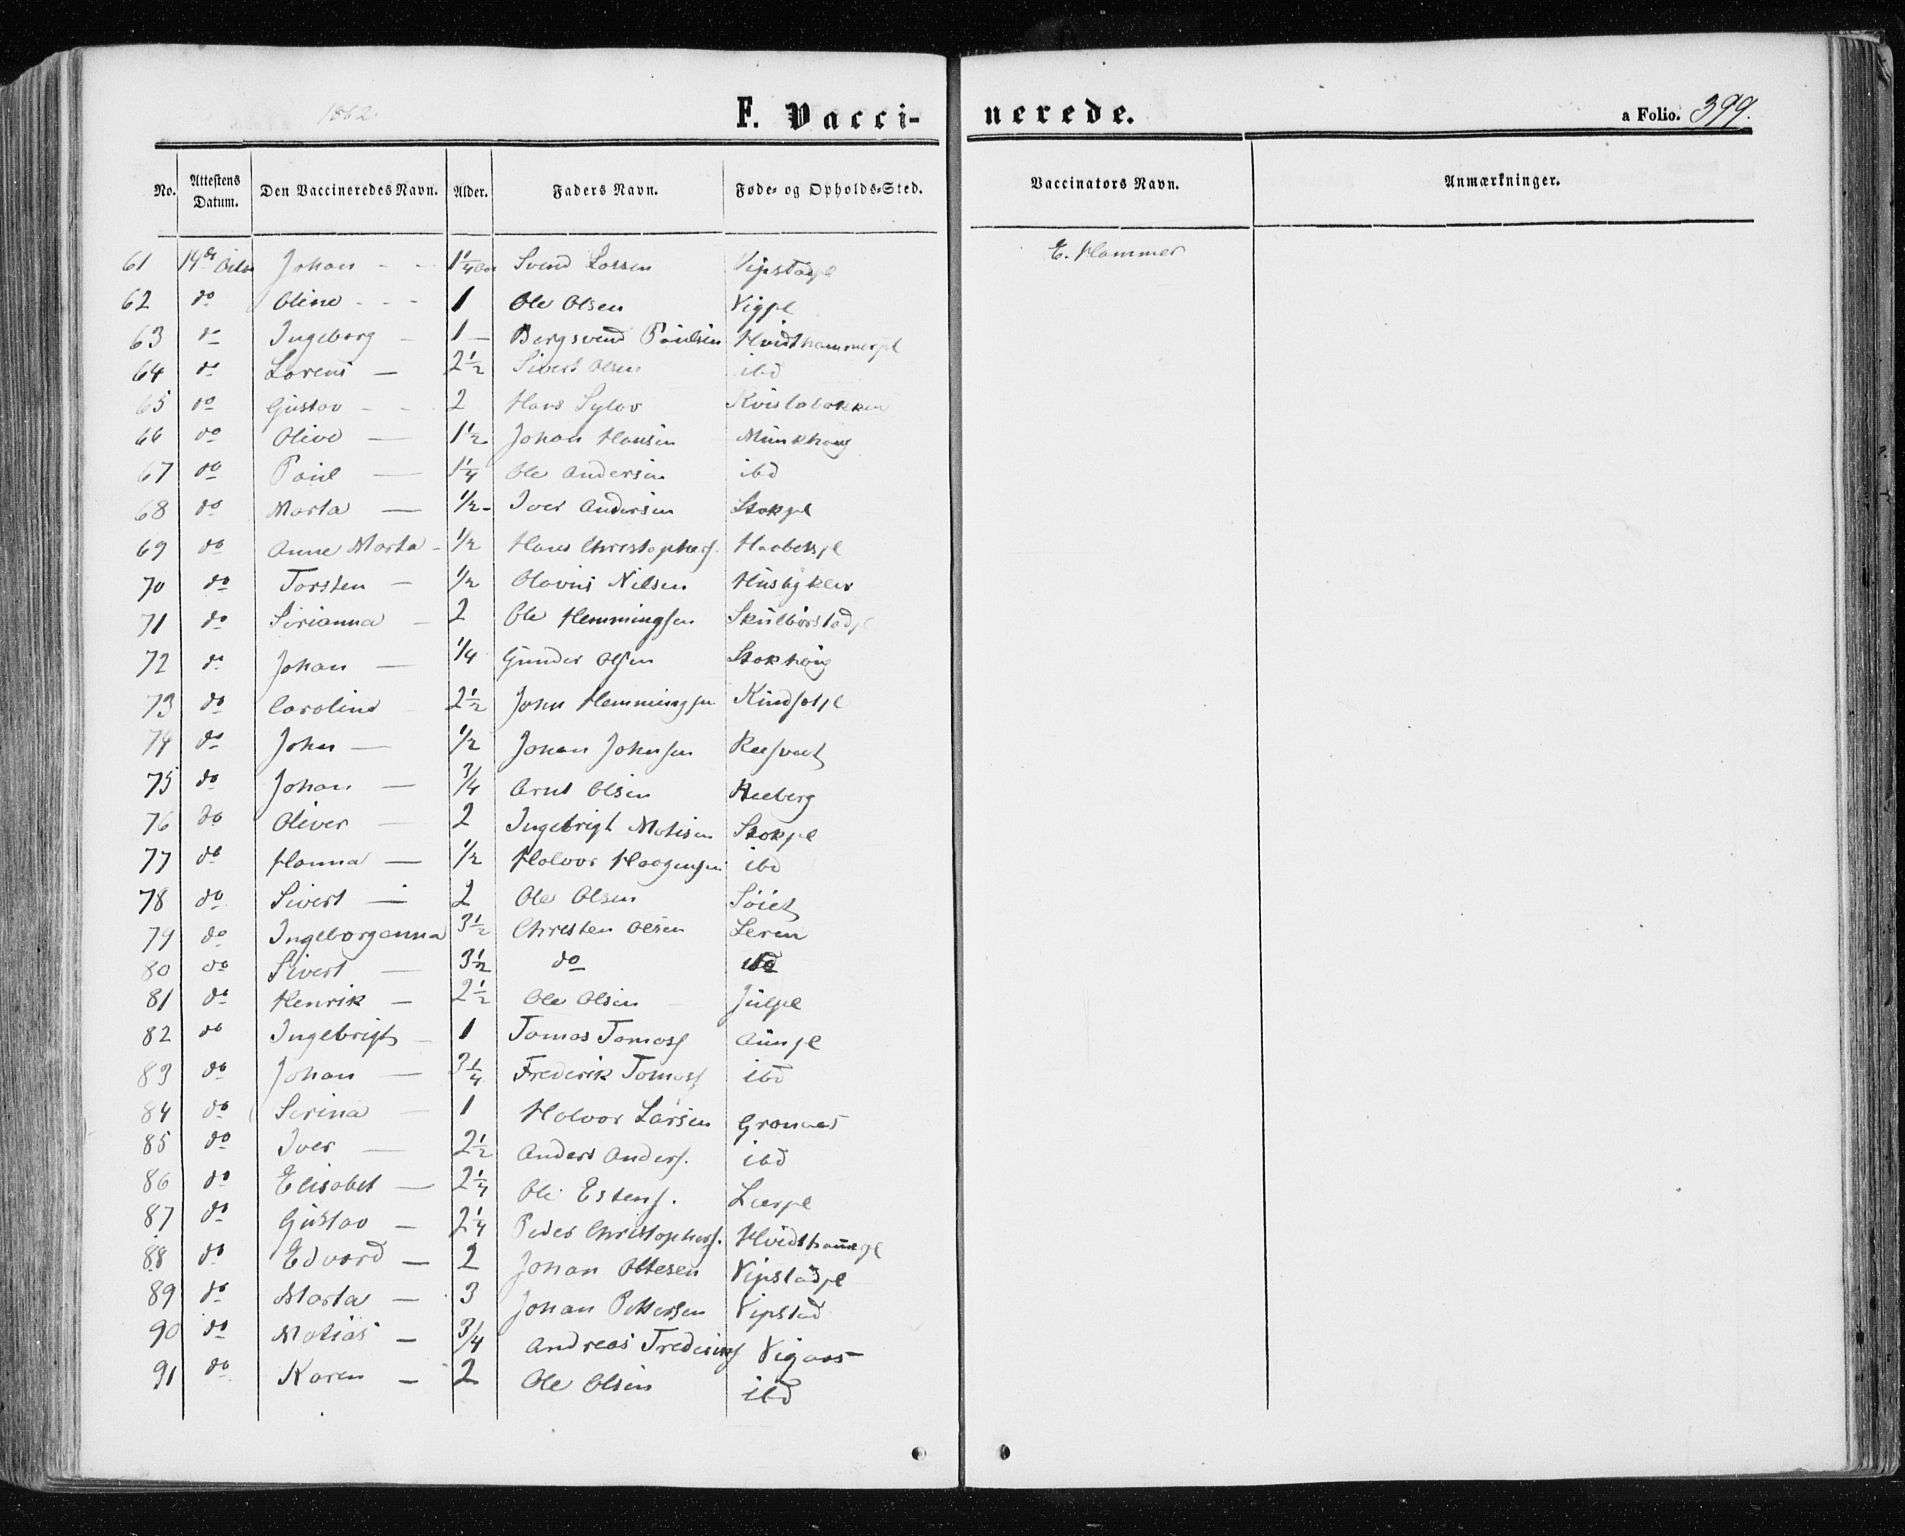 1862
F. Vacci-
nerede.
a Folio. 399.
No. Attestens Datum. Den Vaccineredes Navn. Alder. Faders Navn. Føde- og Opholds-Sted. Vaccinators Navn. Anmærkninger.
61 14de Johan - - 1 1/4 Svend Larsen Vipstadpl E. Hammer
62 do Oline - - - 1 Ole Olsen Vigpl
63 do Ingeborg - 1 - Bergsvend Paulsen Hvidthammerpl
64 do Lorens - 2 1/2 Sivert Olsen ibd
65 do Gustav - - 2 Hans Sylov
66 do Olive - 1 1/2 Johan Hansen Munkhaug
67 do Paul - 1 1/4 Ole Andersen ibd
68 do Marta - 1/2 - Iver Andersen Stokpl
69 do Anne Marta - 1/2 Hans Christophers.
70 do Torsten - 1/2 Olavus Nilsen Husbykler
71 do Sirianna - 2 Ole Hemmingsen Skulbørstadpl
72 do Johan - 1/4 Gunder Olsen Stokhaug
73 do Caroline - 2 1/2 John Hemmingsen
74 do John - 1/2 Johan Johnsen
75 do Johan - 3/4 Arnt Olsen Reeberg
76 do Oliver - 2 Ingebrigt Matisen Stokpl
77 do Hanna - 1/2 Halvor Haagensen ibd
78 do Sivert - 2 Ole Olsen Søiet
79 do Ingeborganna 3 1/2 Christen Olsen Leren
80 do Sivert - 3 1/2 do
81 do Henrik - 2 1/2 Ole Olsen Julpl
82 do Ingebrigt - 1 Tomas Tomass Aunpl
83 do Johan - 3 1/4 Frederik Tomass ibd
84 do Serina - 1 Halvor Larsen Grannes
85 do Iver - 2 1/2 Anders Anders. ibd
86 do Elisabet - 2 1/4 Ole Estens. Lerpl
87 do Gustav - 2 1/4 Peder Christophers. Hvidthammerpl
88 do Edvard - 2 Johan Ottesen Vipstadpl
89 do Marta - 3 Johan Pettersen Vipstad
90 do Matias - 3/4 Andreas Vigaas
91 do Karen - 2 Ole Olsen ibd